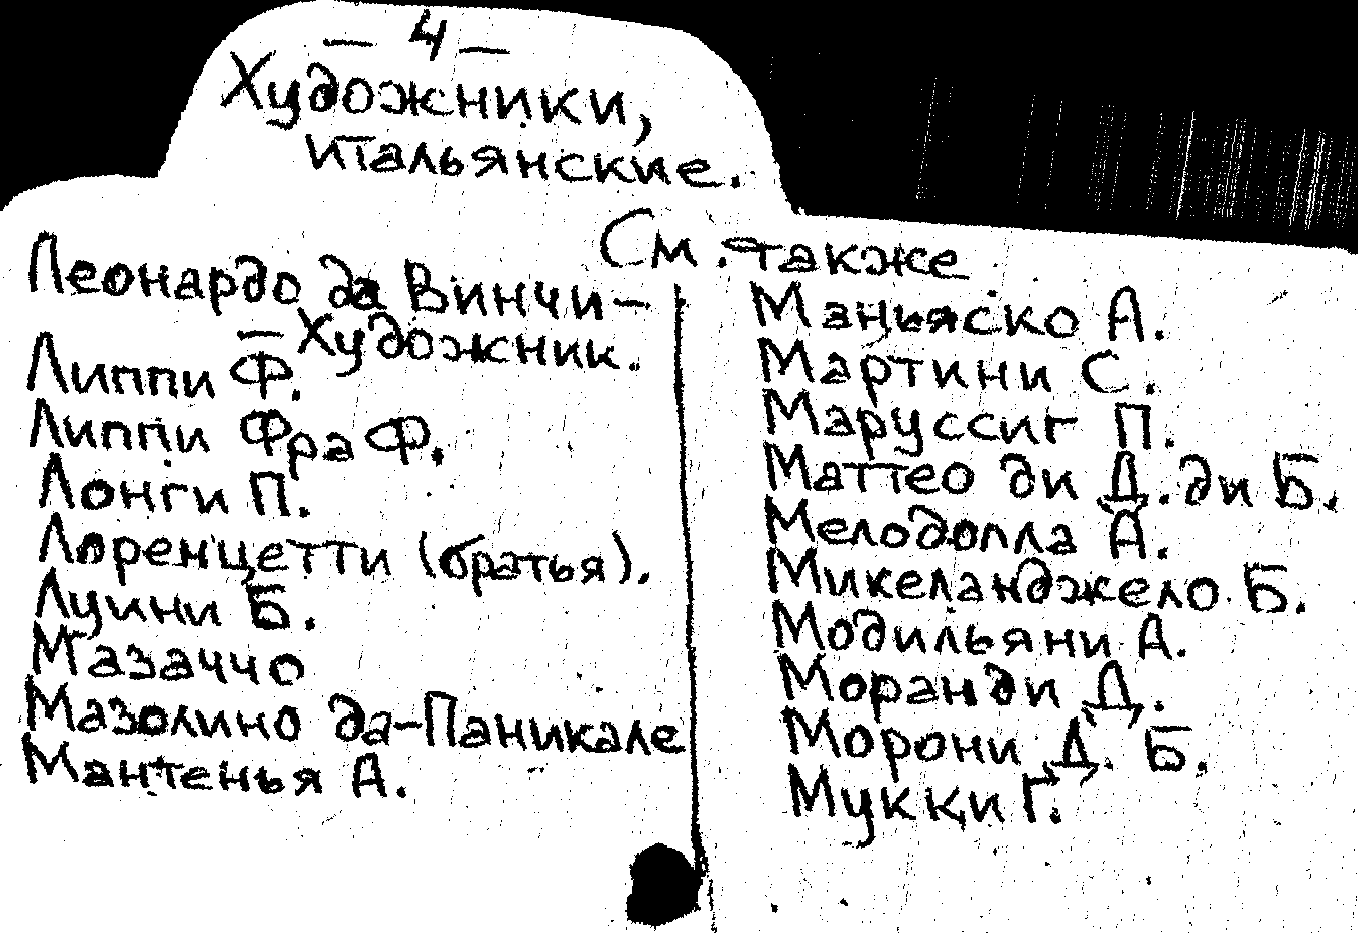 — 4 —
Художники,
итальянские.
См. также
Леонардо да Винчи —
— Художник.
Липпи Ф.
Липпи Фра Ф.
Лонги П.
Лоренцетти (братья).
Луини Б.
Мазаччо
Мазолино да-Паникале
Мантенья А.
Маньяско А.
Мартини С.
Маруссиг П.
Маттео ди Д. ди Б.
Мелодолла А.
Микеланджело Б.
Модильяни А.
Моранди Д.
Морони Д. Б.
Мукки Г.